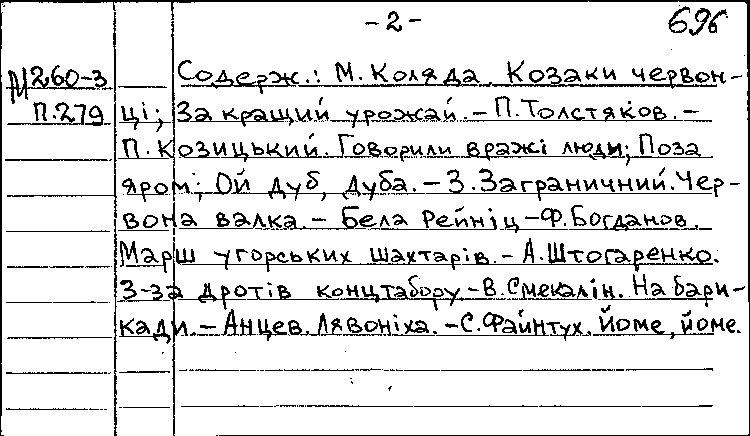 -2- 696
М260-3 Содерж.: М. Коляда. Козаки червон-
П.279 ці; За кращий урожай. - П. Толстяков. -
П. Козицький. Говорили вражі люди; Поза
яром; Ой дуб, дуба. - З. Заграничний. Чер-
вона валка. - Бела Рейніц - Ф. Богданов.
Марш угорських шахтарів. - А. Штогаренко.
З-за дротів концтабору. - В. Смекалін. На бари-
кади. - Анцев. Лявоніха. - С. Файнтух. Йоме, йоме.